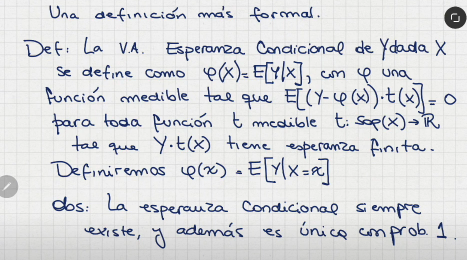 Una definición más formal.
Def: La V.A. Esperanza Condicional de Y dada X
se define como φ(X)=E[Y|X], con φ una
función medible tal que E[(Y-φ(X))·t(X)]=0
para toda función t medible t: sop(X)→ℝ
tal que Y·t(X) tiene esperanza finita.
Definiremos φ(x) = E[Y|X=x]
obs: La esperanza condicional siempre
existe, y además es única con prob. 1.